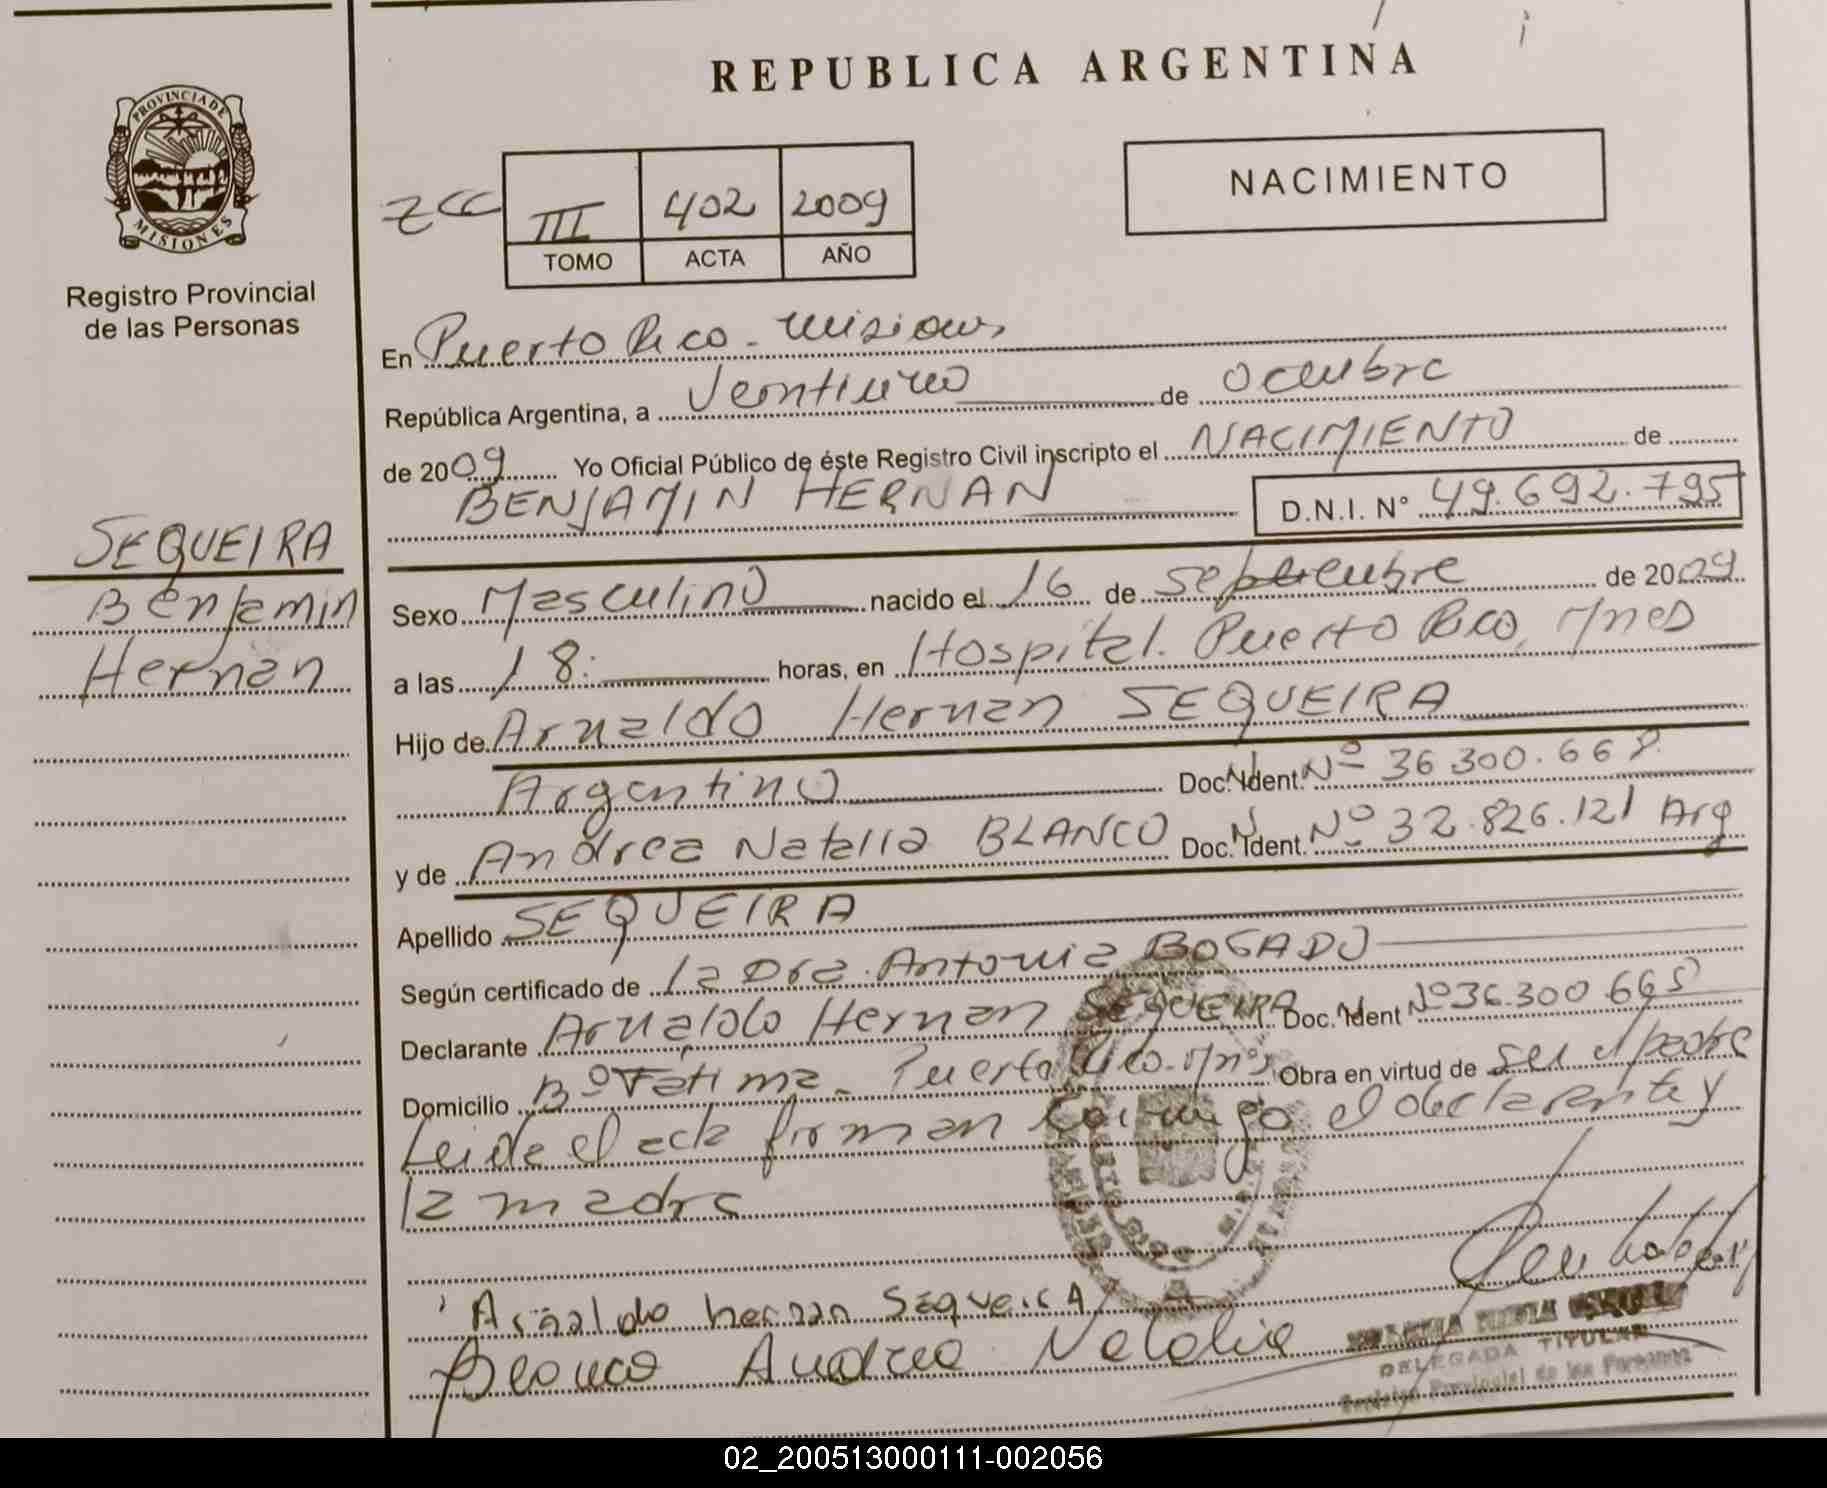 REPUBLICA ARGENTINA
PROVINCIA DE
MISIONES
Registro Provincial
de las Personas
ZCC III 402 2009
TOMO ACTA AÑO
NACIMIENTO
En Puerto Rico - Misiones
República Argentina, a Veintiuno de Octubre
de 2009 Yo Oficial Público de éste Registro Civil inscripto el NACIMIENTO de
BENJAMIN HERNAN D.N.I. Nº 49.692.795
SEQUEIRA
Benjamin
Hernán
Sexo Masculino nacido el 16 de Septiembre de 2009
a las 18: horas, en Hospital. Puerto Rico, Mnes
Hijo de Arnaldo Hernan SEQUEIRA
Argentino Doc. Ident. Nº 36.300.668
y de Andrea Natalia BLANCO Doc. Ident. Nº 32.826.121 Arg
Apellido SEQUEIRA
Según certificado de la Dra. Antonia BOGADO
Declarante Arnaldo Hernan SEQUEIRA Doc. Ident Nº 36.300.668
Domicilio Bº Fatima - Puerto Rico - Mnes Obra en virtud de ser el padre
Leida el acta firman conmigo el declarante y
la madre
Arnaldo hernan Sequeira
Blanco Andrea Natalia
DELEGADA TITULAR
Registro Provincial de las Personas
02_200513000111-002056